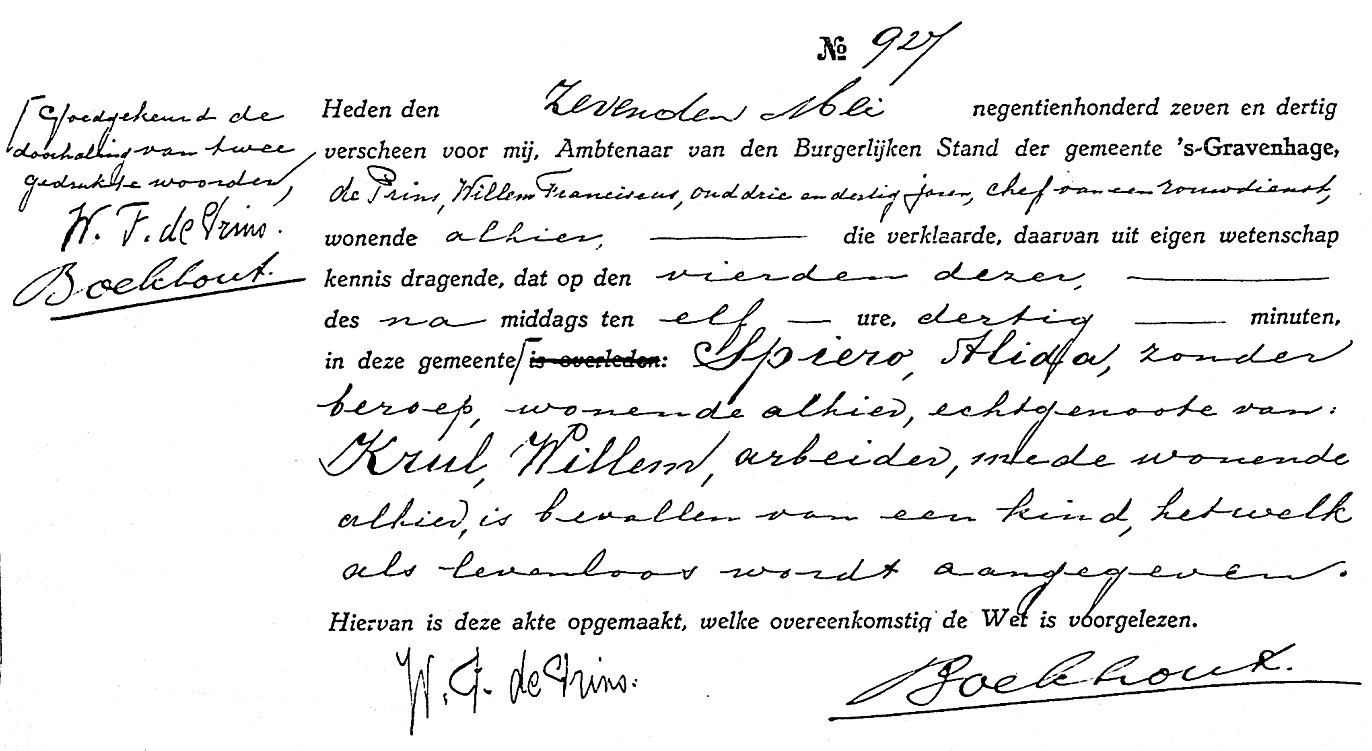 № 927
Heden den Zevenden Mei negentienhonderd zeven en dertig
verscheen voor mij, Ambtenaar van den Burgerlijken Stand der gemeente 's-Gravenhage,
de Prins, Willem Franciscus, oud drie en dertig jaren, chef van een rouwdienst,
wonende alhier, die verklaarde, daarvan uit eigen wetenschap
kennis dragende, dat op den vierden dezer,
des na middags ten elf ure, dertig minuten,
in deze gemeente is overleden: Spiero, Alida, zonder
beroep, wonende alhier, echtgenoote van:
Krul, Willem, arbeider, mede wonende
alhier, is bevallen van een kind, hetwelk
als levenloos wordt aangegeven.
Hiervan is deze akte opgemaakt, welke overeenkomstig de Wet is voorgelezen.
W. F. de Prins.
Boekhout.
Goedgekeurd de
doorhaling van twee
gedrukte woorden,
W. F. de Prins.
Boekhout.